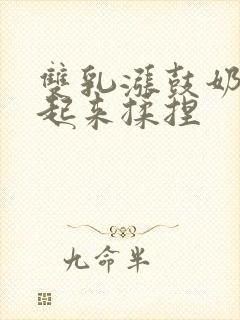 雙乳漲鼓奶
起来揉捏
九命半